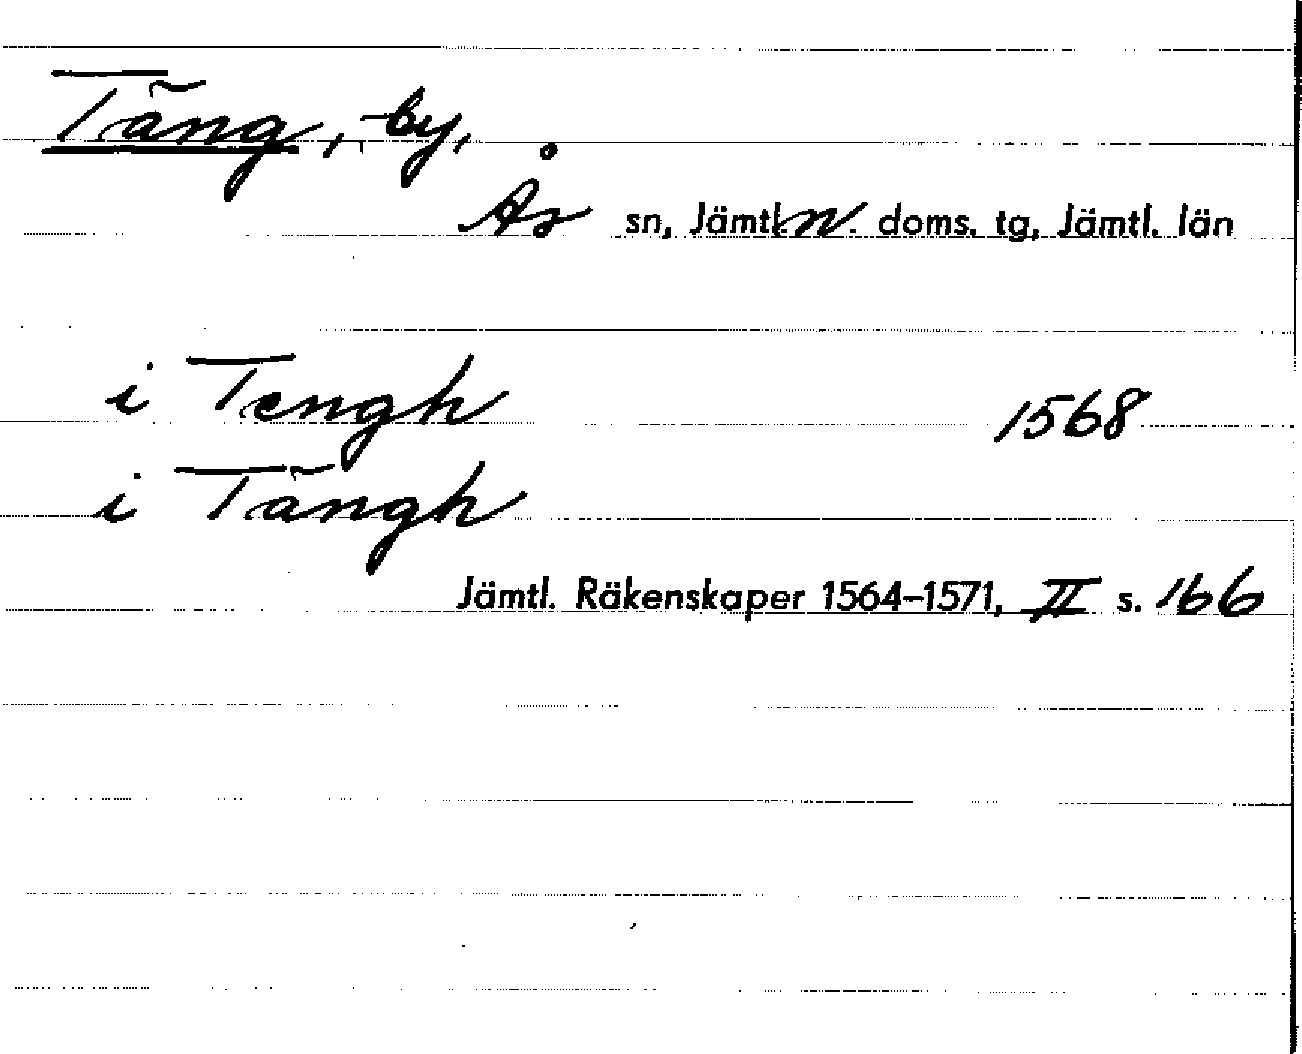 Täng, by,
Ås sn, Jämtl. n. doms. tg, Jämtl. län
i Tengh 1568
i Tängh
Jämtl. Räkenskaper 1564–1571, II s. 166